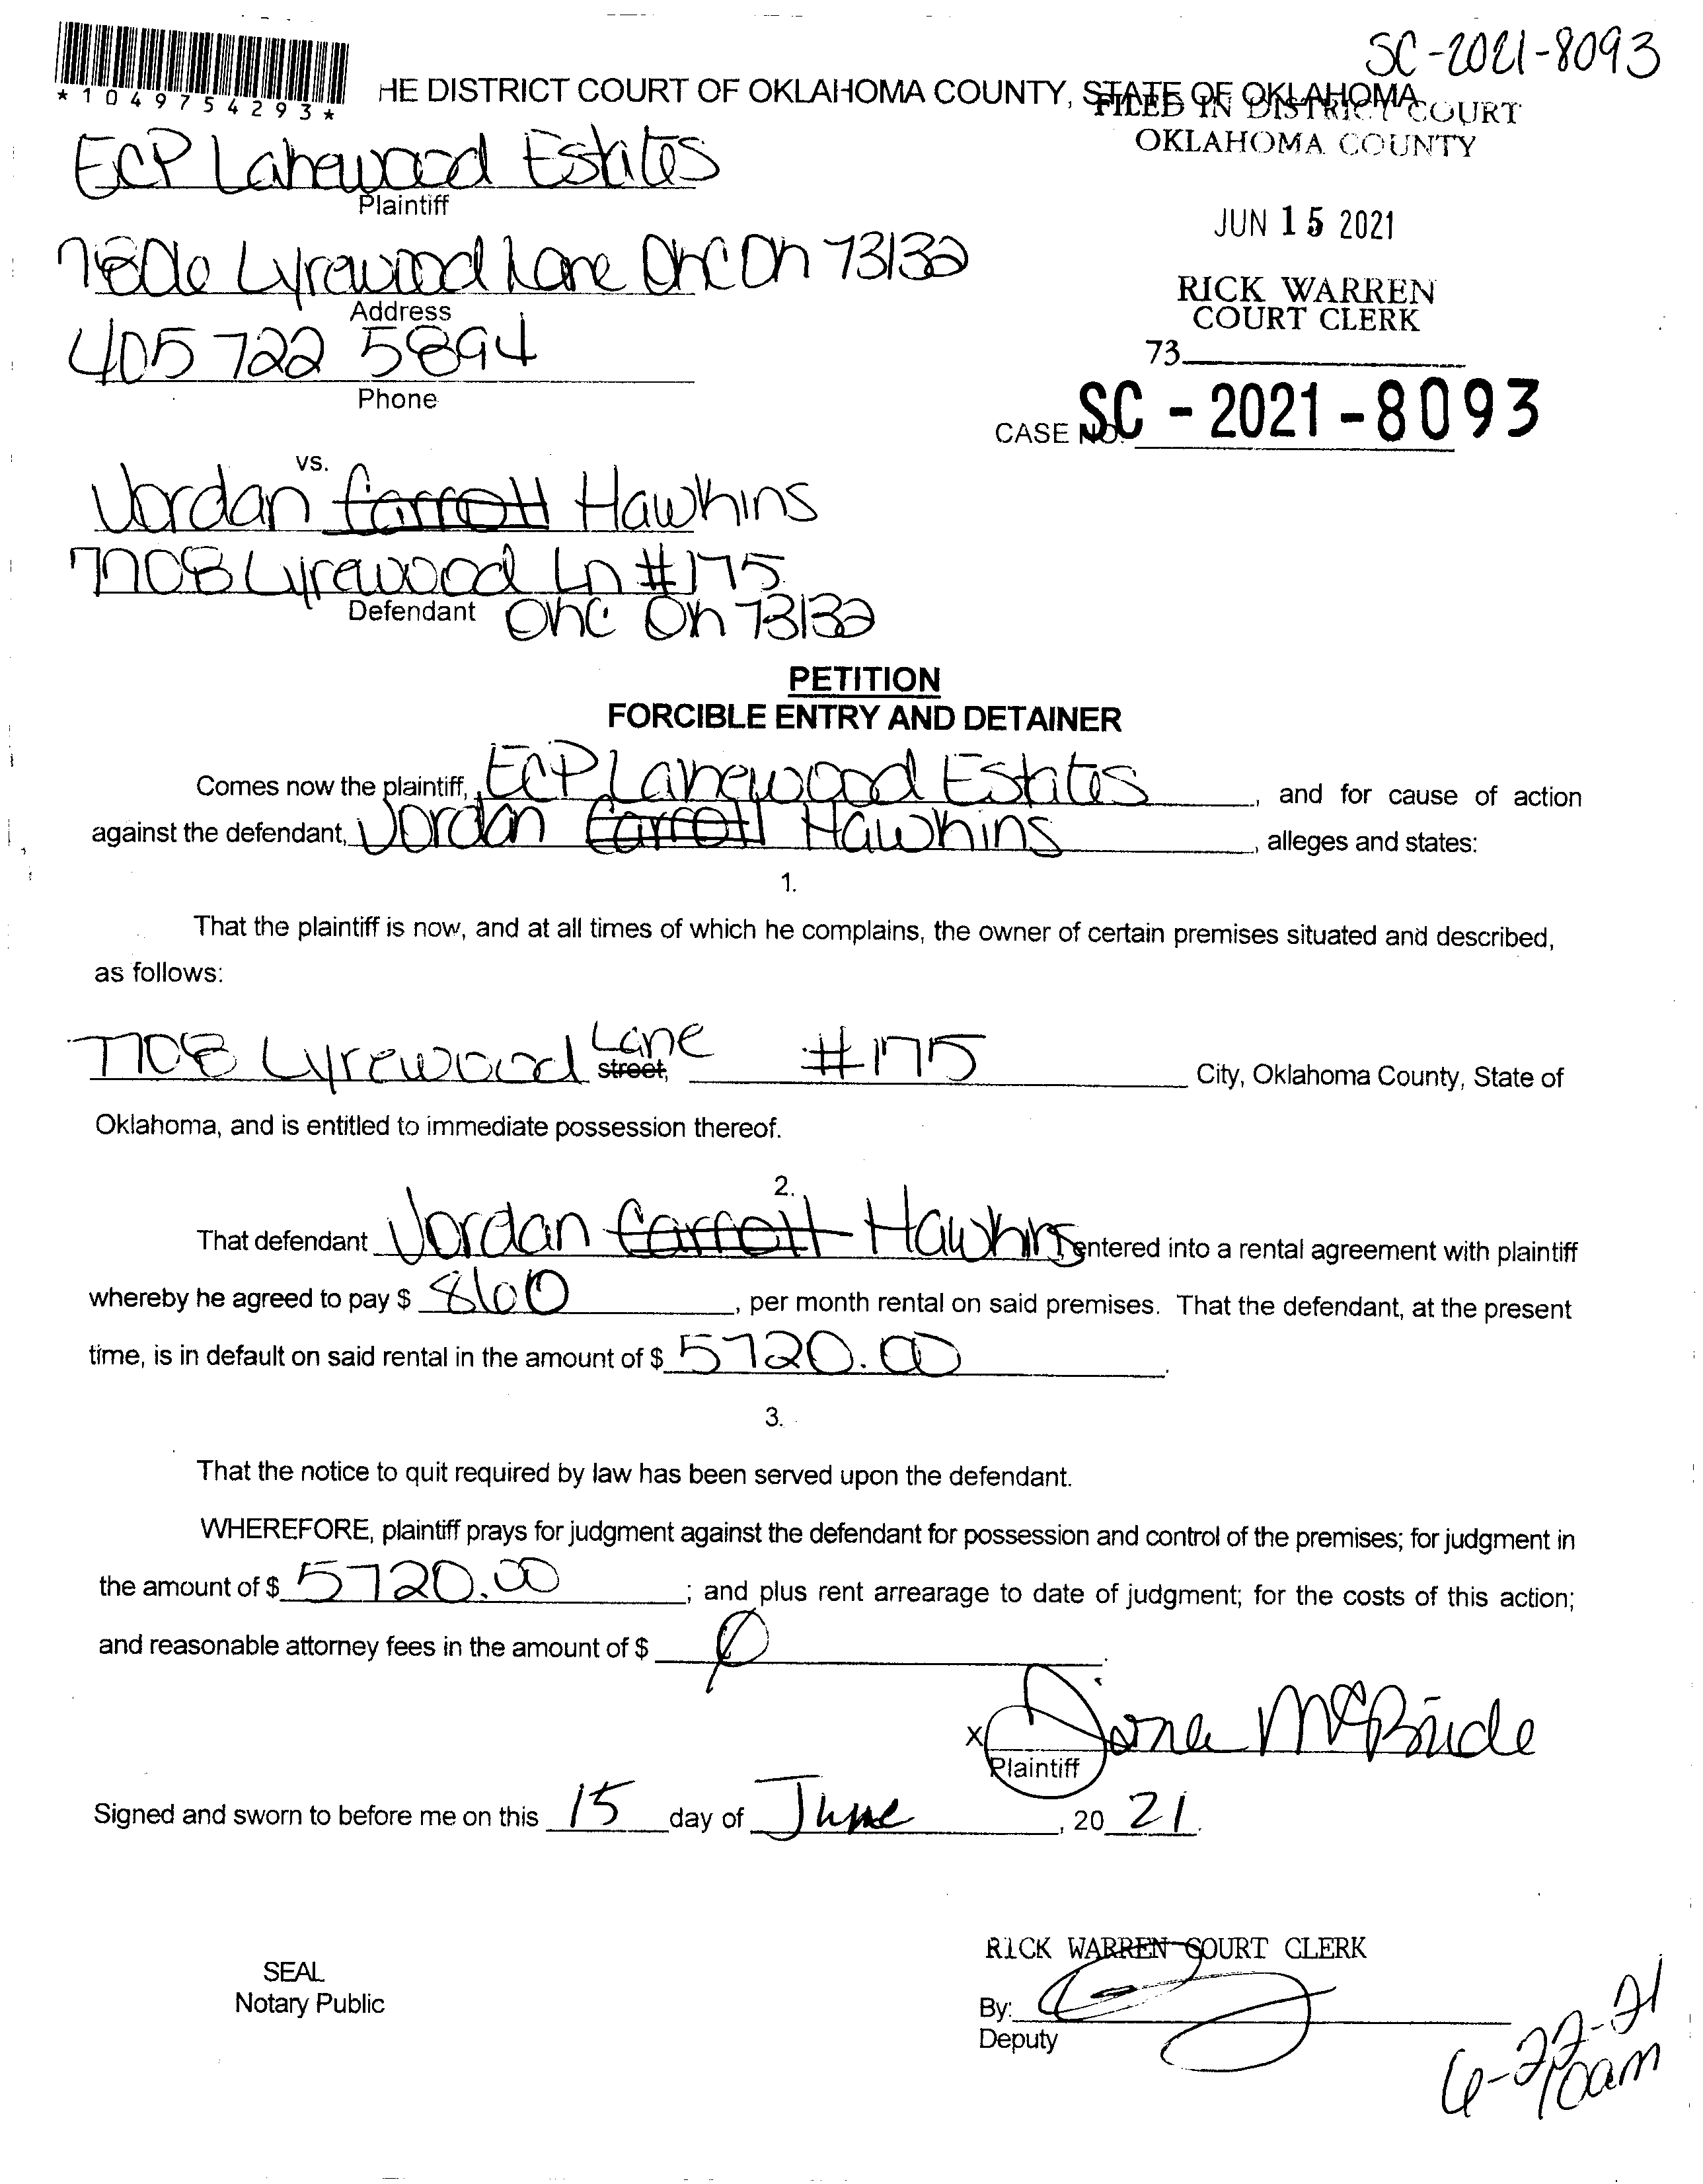 SC-2021-8093
*1049754293*
HE DISTRICT COURT OF OKLAHOMA COUNTY, STATE OF OKLAHOMA
FILED IN DISTRICT COURT
OKLAHOMA COUNTY
ECP Lakewood Estates
Plaintiff
JUN 15 2021
7806 Lyrewood Lane OKC OK 73132
Address
RICK WARREN
COURT CLERK
405 722 5894
Phone
73
CASE NO. SC - 2021 - 8093
vs.
Jordan Garrett Hawkins
7708 Lyrewood Ln #175
Defendant OKC OK 73132
PETITION
FORCIBLE ENTRY AND DETAINER
Comes now the plaintiff, ECP Lakewood Estates, and for cause of action
against the defendant, Jordan Garrett Hawkins, alleges and states:
1.
That the plaintiff is now, and at all times of which he complains, the owner of certain premises situated and described,
as follows:
7708 Lyrewood Lane street, #175 City, Oklahoma County, State of
Oklahoma, and is entitled to immediate possession thereof.
2.
That defendant Jordan Garrett Hawkins entered into a rental agreement with plaintiff
whereby he agreed to pay $ 860, per month rental on said premises. That the defendant, at the present
time, is in default on said rental in the amount of $ 5720.00.
3.
That the notice to quit required by law has been served upon the defendant.
WHEREFORE, plaintiff prays for judgment against the defendant for possession and control of the premises; for judgment in
the amount of $ 5720.00; and plus rent arrearage to date of judgment; for the costs of this action;
and reasonable attorney fees in the amount of $ 0.
X Dione McBride
Plaintiff
Signed and sworn to before me on this 15 day of June, 20 21.
RICK WARREN COURT CLERK
SEAL
Notary Public
By:
Deputy
6-22-21
10am